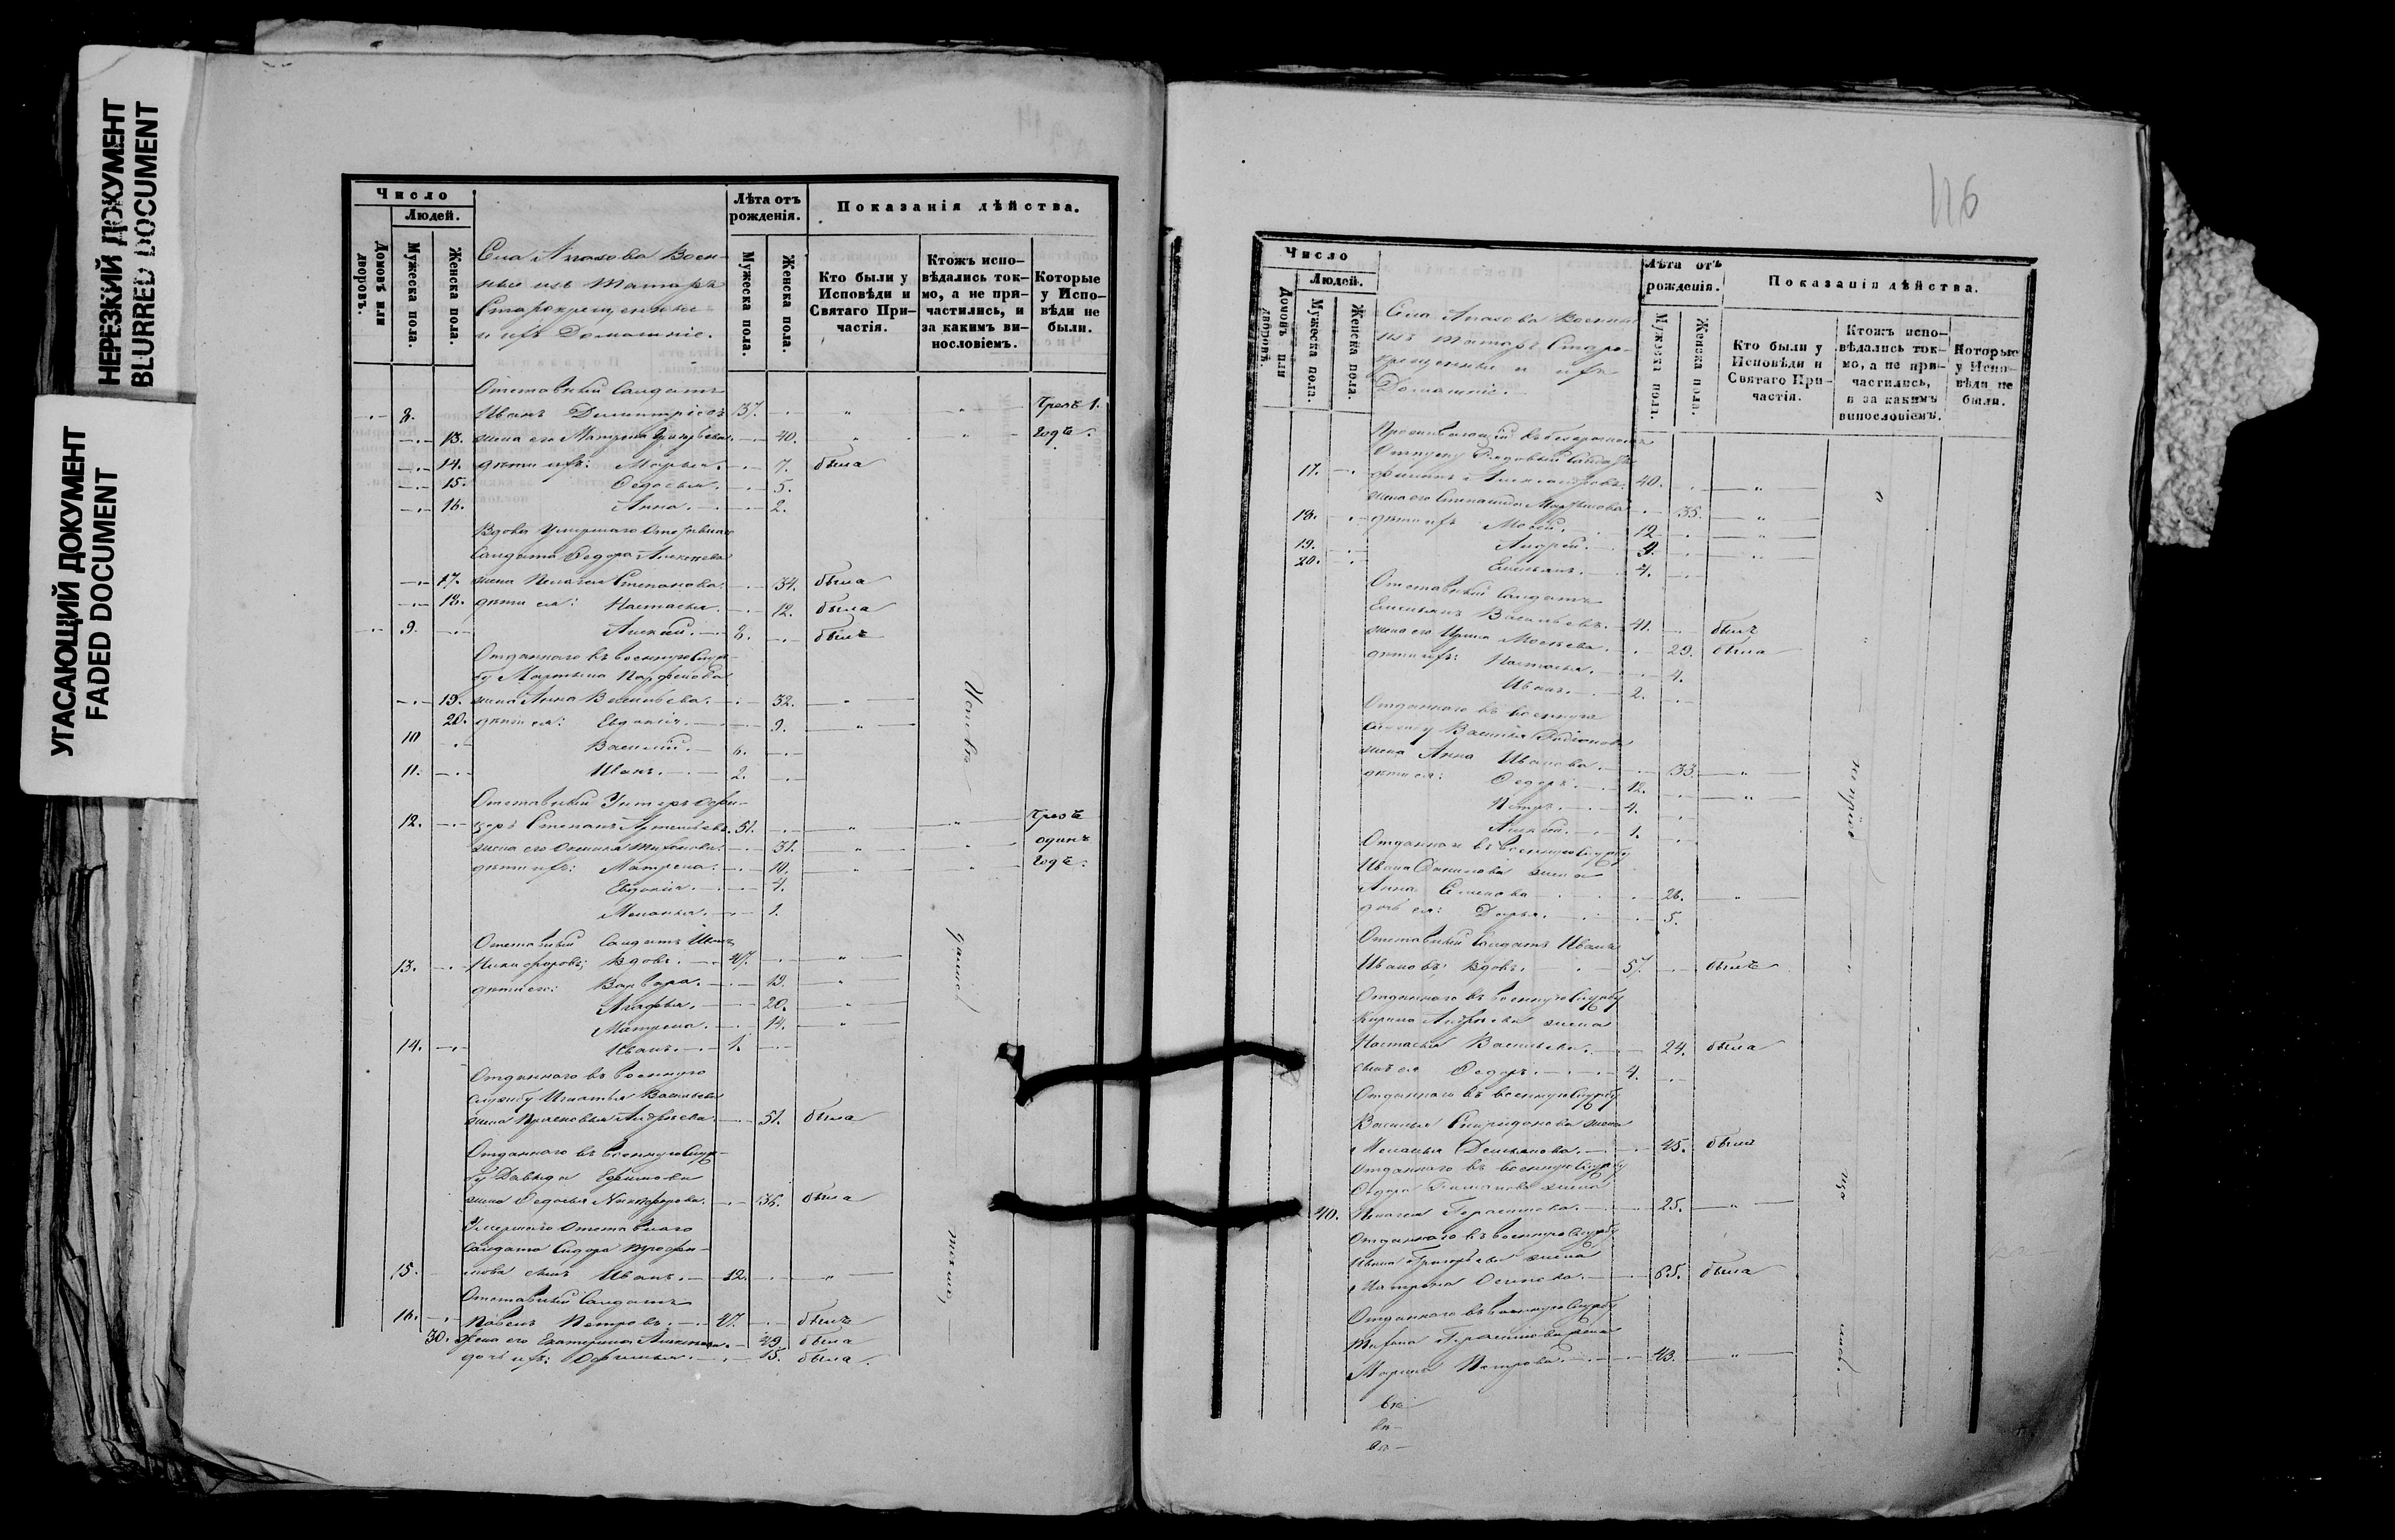 НЕРЕЗКИЙ ДОКУМЕНТ
BLURRED DOCUMENT
УГАСАЮЩИЙ ДОКУМЕНТ
FADED DOCUMENT
Число
Людей.
Домовъ или дворовъ.
Мужеска пола.
Женска пола.
Села Апазова Воен-
ные изъ Татаръ
Старокрещенные
и ихъ Домашніе.
Лѣта отъ рожденія.
Мужеска пола.
Женска пола.
Показанія дѣйства.
Кто были у Исповѣди и Святаго При-частія.
Ктожъ испо-вѣдались ток-мо, а не при-частились, и за какимъ ви-нословіемъ.
Которые у Испо-вѣди не были.
Отставный Солдатъ
8. Иванъ Димитріевъ 37. Чрезъ 1.
13. жена его Матрена Григорьева 40. годъ.
14. дѣти ихъ: Марья. 7. была
15. Федосья. 5.
16. Анна. 2.
Вдова Умершаго Отставнаго
Солдата Федора Алексѣева
17. жена Пелагея Степанова. 34. была
18. дѣти ея: Настасья. 12. была
9. Алексей. 8. былъ
Отданнаго въ военную служ-
бу Мартына Парфенова
19. жена Анна Васильева. 32.
20. дѣти ея: Евдокія. 9.
10 Василій. 6.
11. Иванъ. 2.
Отставный Унтеръ Офи-
12. церъ Степанъ Артемьевъ. 51. Чрезъ
жена его Акилина Тихонова. 31. одинъ
дѣти ихъ: Матрена. 10. годъ.
Евдокія. 4.
Меланья. 1.
Отставный Солдатъ Иванъ
13. Никифоровъ; Вдовъ. 47.
дѣти его: Варвара. 19.
Агафья. 20.
Матрена. 14.
14. Иванъ. 1.
Отданнаго въ военную
службу Игнатья Васильева
жена Прасковья Андреева. 51. была
Отданнаго въ военную служ-
бу Давыда Ефимова
жена Федосья Никифорова. 36. была
Умершаго Отставнаго
Солдата Сидора Трофи-
15. мова сынъ Иванъ. 12.
Отставный Солдатъ
16. Павелъ Петровъ. 47. былъ
30. жена его Екатерина Алексѣева. 49. была
дочь ихъ: Офимья. 15. была.
116
Число
Людей.
Домовъ или дворовъ.
Мужеска пола.
Женска пола.
Села Апазова Военные
изъ Татаръ Старо-
крещенные и ихъ
Домашніе.
Лѣта отъ рожденія.
Мужеска пола.
Женска пола.
Показанія дѣйства.
Кто были у Исповѣди и Святаго При-частія.
Ктожъ испо-вѣдались ток-мо, а не при-частились, и за какимъ винословіемъ.
Которые у Испо-вѣди не были.
17. 40.
жена его Степанида Мартынова 35.
18. дѣти ихъ Мосей. 12
19. Андрей. 9.
20. Емельянъ. 4.
Отставный Солдатъ
Емельянъ Васильевъ. 41. былъ
жена его Ирина Мосеева. 29. была
дѣти ихъ: Настасья. 4.
Иванъ. 2.
Отданнаго въ военную
службу Василья Родіонова
жена Анна Иванова. 33.
дѣти ея: Федоръ. 12.
Петръ. 4.
Алексей. 1.
Отданнаго въ военную службу
Ивана жена
Анна Семенова 26.
дочь ея: Дарья. 5.
Отставный Солдатъ Иванъ
Ивановъ: Вдовъ. 57. былъ
Отданнаго въ военную службу
Кирила Андреева жена
Настасья Васильева. 24. была
сынъ ея Федоръ. 4.
Отданнаго въ военную службу
Василья Спиридонова жена
Меланья Демьянова. 45. была
Отданнаго въ военную службу
Федора жена
40. Пелагея Герасимова. 25.
Отданнаго въ военную службу
Ивана Григорьева жена
Матрена Осипова. 65. была
Отданнаго въ военную службу
Тифона Герасимова жена
Марина Петрова. 43.